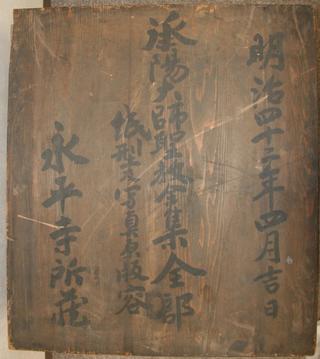 明治四十二年四月吉日
承陽大師聖教全集全部
紙型及写真原版容
永平寺所蔵